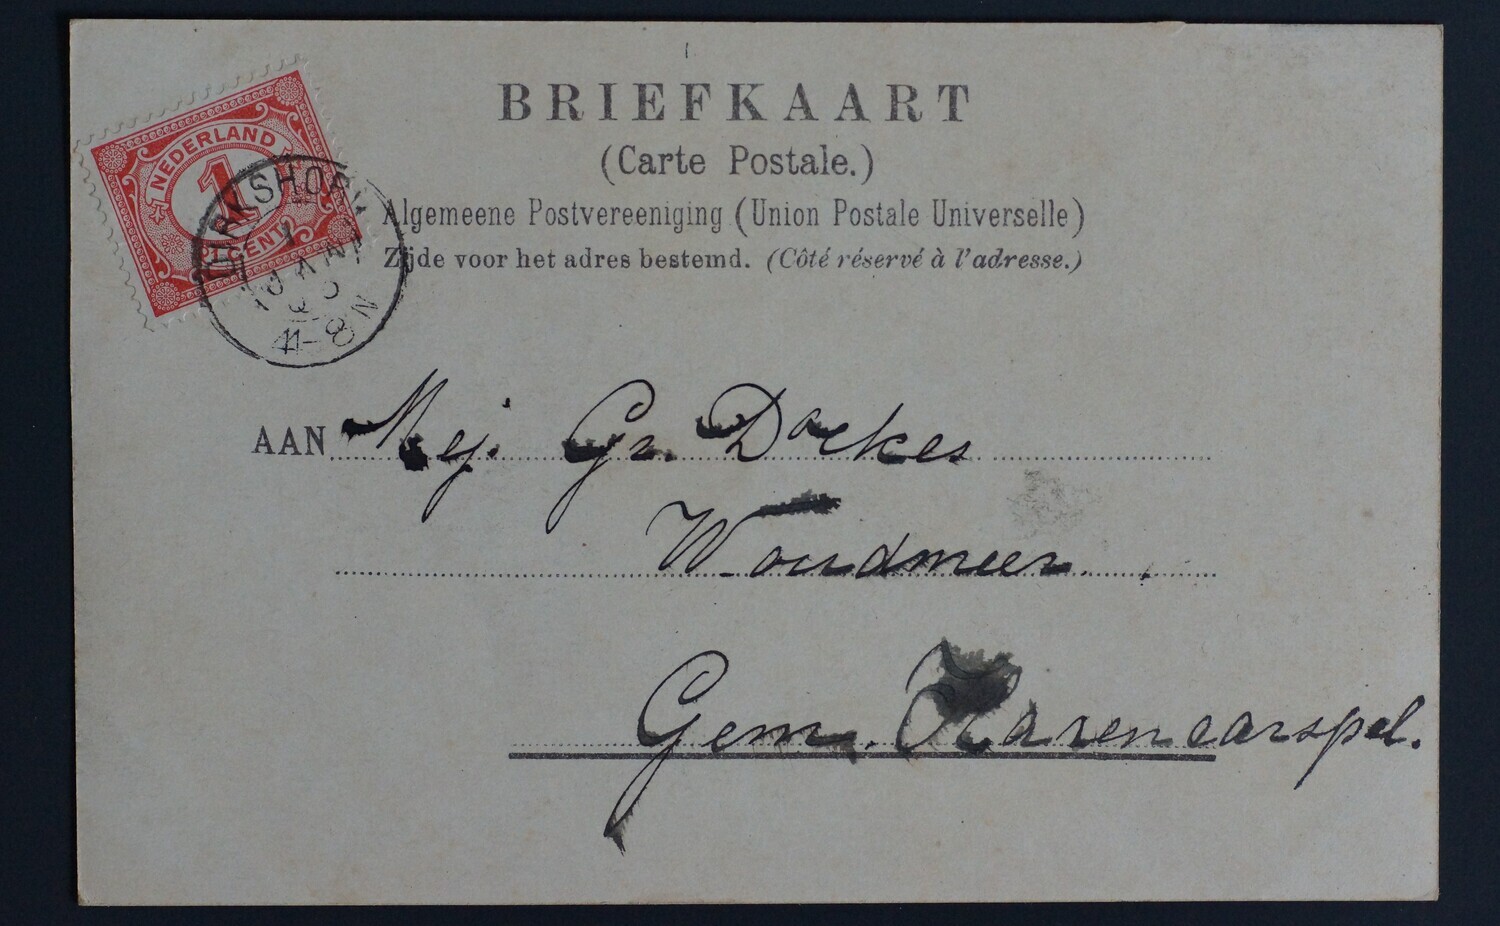 BRIEFKAART
(Carte Postale.)
Algemeene Postvereeniging (Union Postale Universelle)
Zijde voor het adres bestemd. (Côté réservé à l'adresse.)
NEDERLAND
1
CENT
DIRKSHORN
1
JAN
4-8 N
AAN Mej. Gr. Dekkes
Woudmeer.
Gem. Harencarspel.